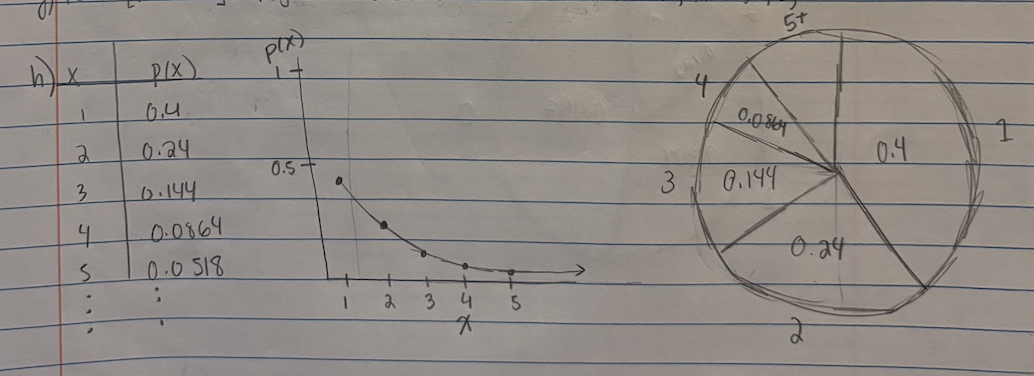 h) x p(x)
1 0.4
2 0.24
3 0.144
4 0.0864
5 0.0518
⋮ ⋮
p(x)
1
0.5
1 2 3 4 5
x
5+
4
0.0864
1
0.4
3
0.144
0.24
2